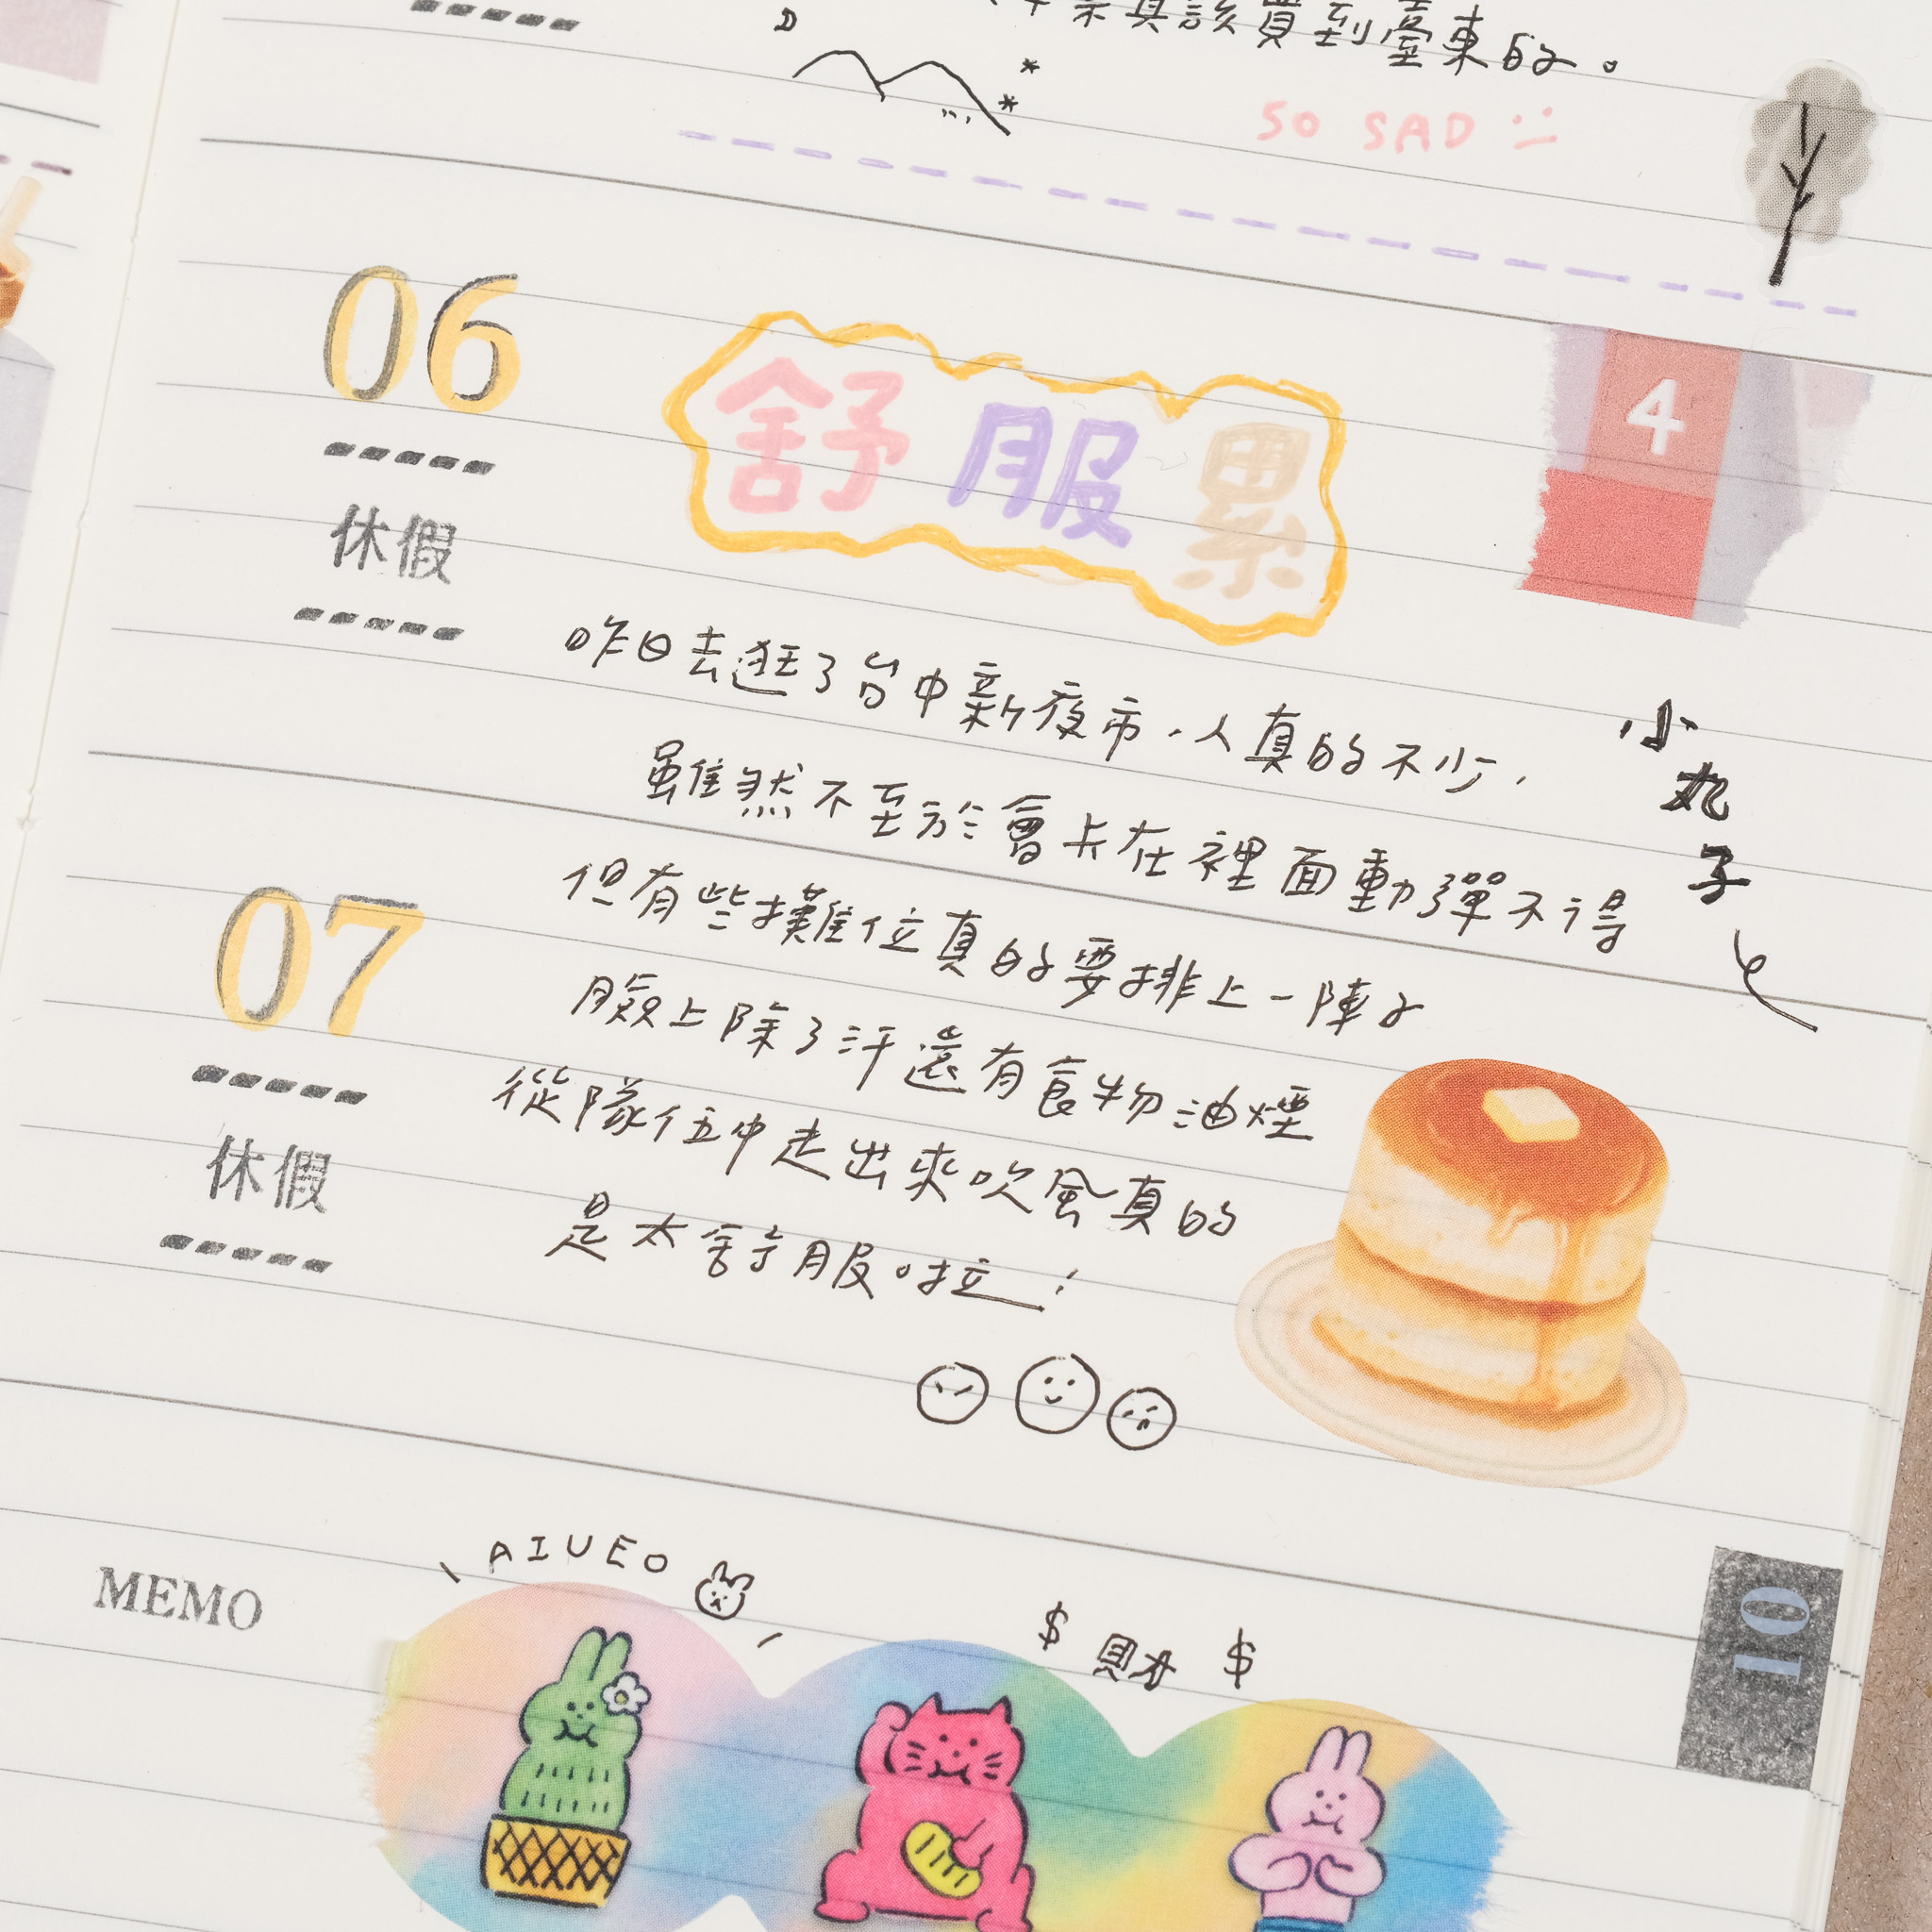 真該買到臺東的。
D
SO SAD
06
休假
舒服累
4
昨日去逛了台中新夜市,人真的不少,
雖然不至於會卡在裡面動彈不得
但有些攤位真的要排上一陣子
臉上除了汗還有食物油煙
從隊伍中走出來吹風真的
是太舒服啦!
小丸子
07
休假
MEMO
AIUEO
$ 財 $
10